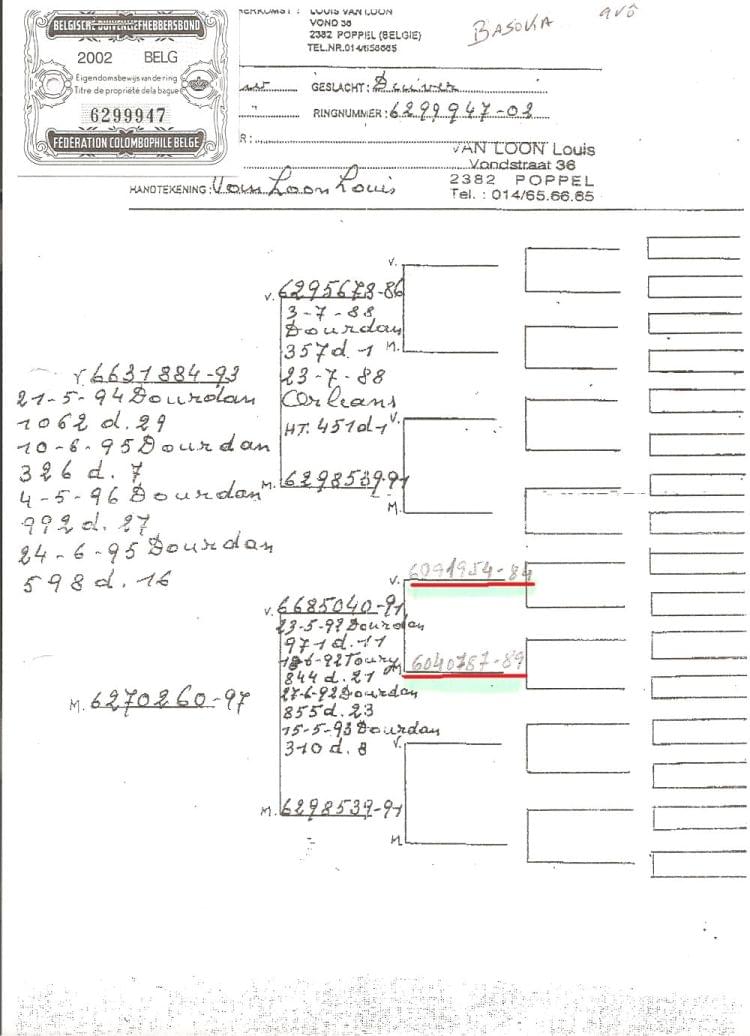 BELGISCHE DUIVENLIEFHEBBERSBOND
2002 BELG
Eigendomsbewijs van de ring
Titre de propriété de la bague
6299947
FEDERATION COLOMBOPHILE BELGE
HERKOMST : LOUIS VAN LOON
VOND 36
2382 POPPEL (BELGIE)
TEL.NR.014/656685
BASOVIA avô
GESLACHT: Duiver
RINGNUMMER: 6299947-02
R:
VAN LOON Louis
Vondstraat 36
2382 POPPEL
Tel. : 014/65.66.85
HANDTEKENING: Van Loon Louis
V. 6631884-93
21-5-94 Dourdan
1062 d. 29
10-6-95 Dourdan
326 d. 7
4-5-96 Dourdan
992 d. 27
24-6-95 Dourdan
598 d. 16
M. 6270260-97
V. 6295678-86
3-7-88
Dourdan
357 d. 1
23-7-88
Orleans
HT. 451 d 1
M. 6298539-91
V. 6685040-91
23-5-92 Dourdan
971 d. 11
6-92 Toury
844 d. 21
27-6-92 Dourdan
855 d. 23
15-5-93 Dourdan
310 d. 8
M. 6298539-91
V.
M.
V.
M.
V. 6091954-84
M 6040787-89
V.
M.